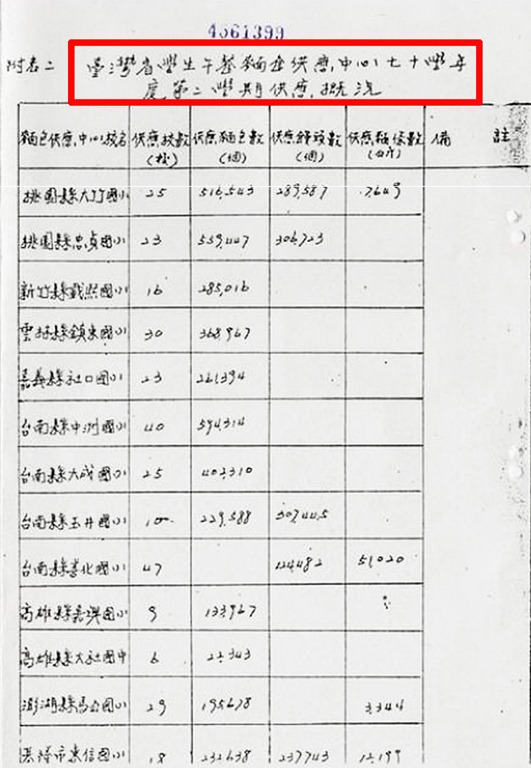 4561399
附表二 臺灣省學生午餐麵包供應中心七十學年
度第二學期供應概況
麵包供應中心校名 供應校數(校) 供應麵包數(個) 供應饅頭數(個) 供應麵條數(公斤) 備註
桃園縣大竹國小 25 516,543 289,587 17,649
桃園縣忠貞國小 23 559,447 306,723
新竹縣 國小 16 285,016
雲林縣鎮東國小 30 368,967
嘉義縣社口國小 23 261,394
台南縣中洲國小 40 594,314
台南縣大成國小 25 402,310
台南縣玉井國小 229,588
台南縣善化國小 47 124,482 51,020
高雄縣嘉興國小 9 133,967
高雄縣大社國中 6 22,343
澎湖縣馬公國小 29 195,678 3,344
基隆市東信國小 18 232,638 237,743 12,199